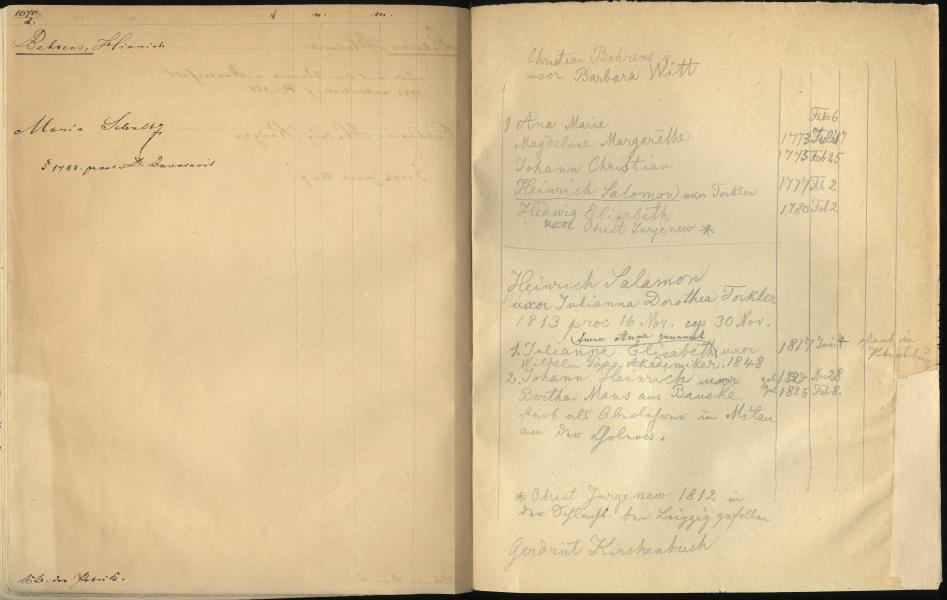 1070.
d.
n. m.
Behrens, Hinrich
Maria Schultz
1742. proc. D. Invocavit
Christian Behrens
uxor Barbara Witt
Febr 6
1 Ana Marie
Magdelene Margarethe 1773 Juli 17
1775 Feb 25
Johann Christian
Heinrich Salomon uxor Torkler 1777 Feb 2
Hedwig Elisabeth 1780 Feb 2
uxor Obrist Jurjenew *
Heinrich Salamon
uxor Julianna Dorothea Torkler
1813 proc. 16 Nov. cop. 30 Nov.
Anna genannt
1. Julianna Elisabeth uxor 1817 starb in
Wilhelm Pape Akademiker. 1848
2. Johann Heinrich uxor geb 1824 Nov 28
Bertha Mans aus Bauske geb 1825 Feb 8.
starb als Oberlehrer in Mitau
an der Cholera.
* Obrist Jurgenew 1812 in
der Schlacht bei Leipzig gefallen
Gerdrut Kirshenbuch